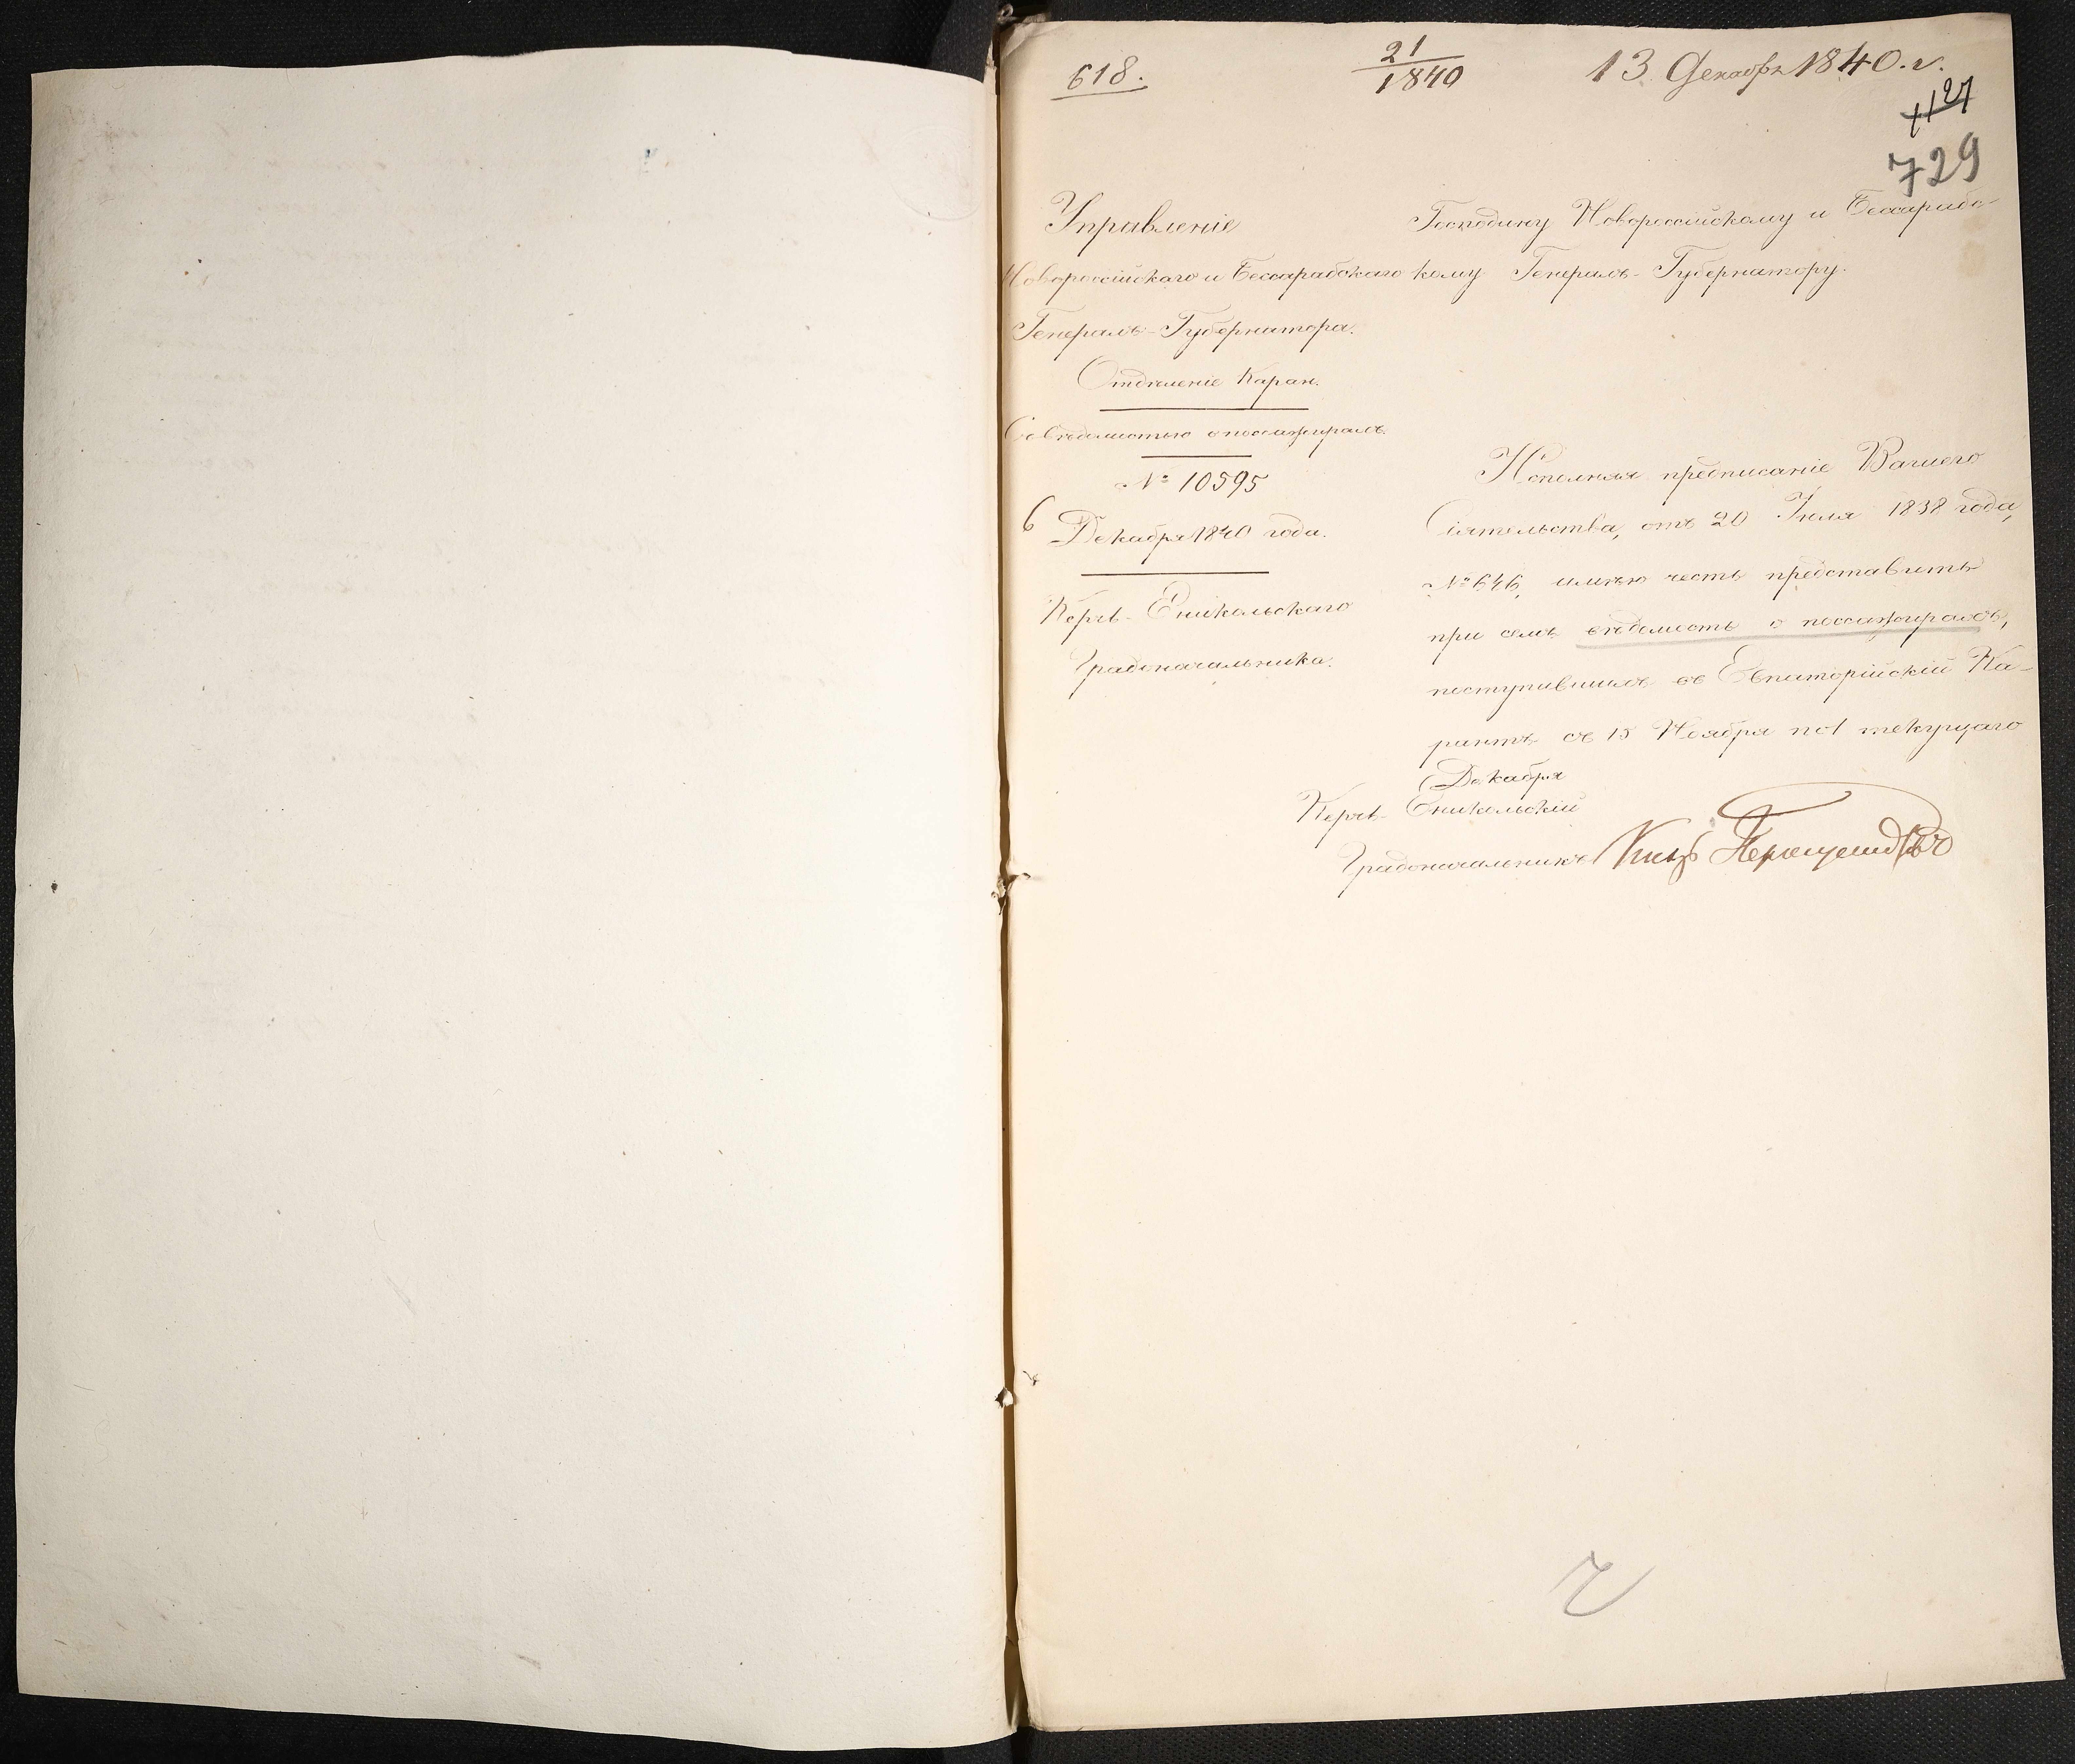 618.
21
1840
13 Декабря 1840. г.
27
729
Управленіе
Новороссійскаго и Бессарабскаго
Генералъ-Губернатора.
Отдѣленіе Каран.
Съ вѣдомостью о пассажирахъ.
№ 10595
6 Декабря 1840 года.
Керчь-Еникольскаго
Градоначальника.
Господину Новороссійскому и Бессарабс-
кому Генералъ-Губернатору.
Исполняя предписаніе Вашего
Сіятельства, отъ 20 Іюля 1838 года,
№ 646, имѣю честь представить
при семъ вѣдомость о пассажирахъ,
поступившихъ въ Евпаторійскій Ка-
рантъ съ 15 Ноября по 1 текущаго
Декабря
Керчь-Еникольскій
Градоначальникъ Князь Херхеулидзевъ